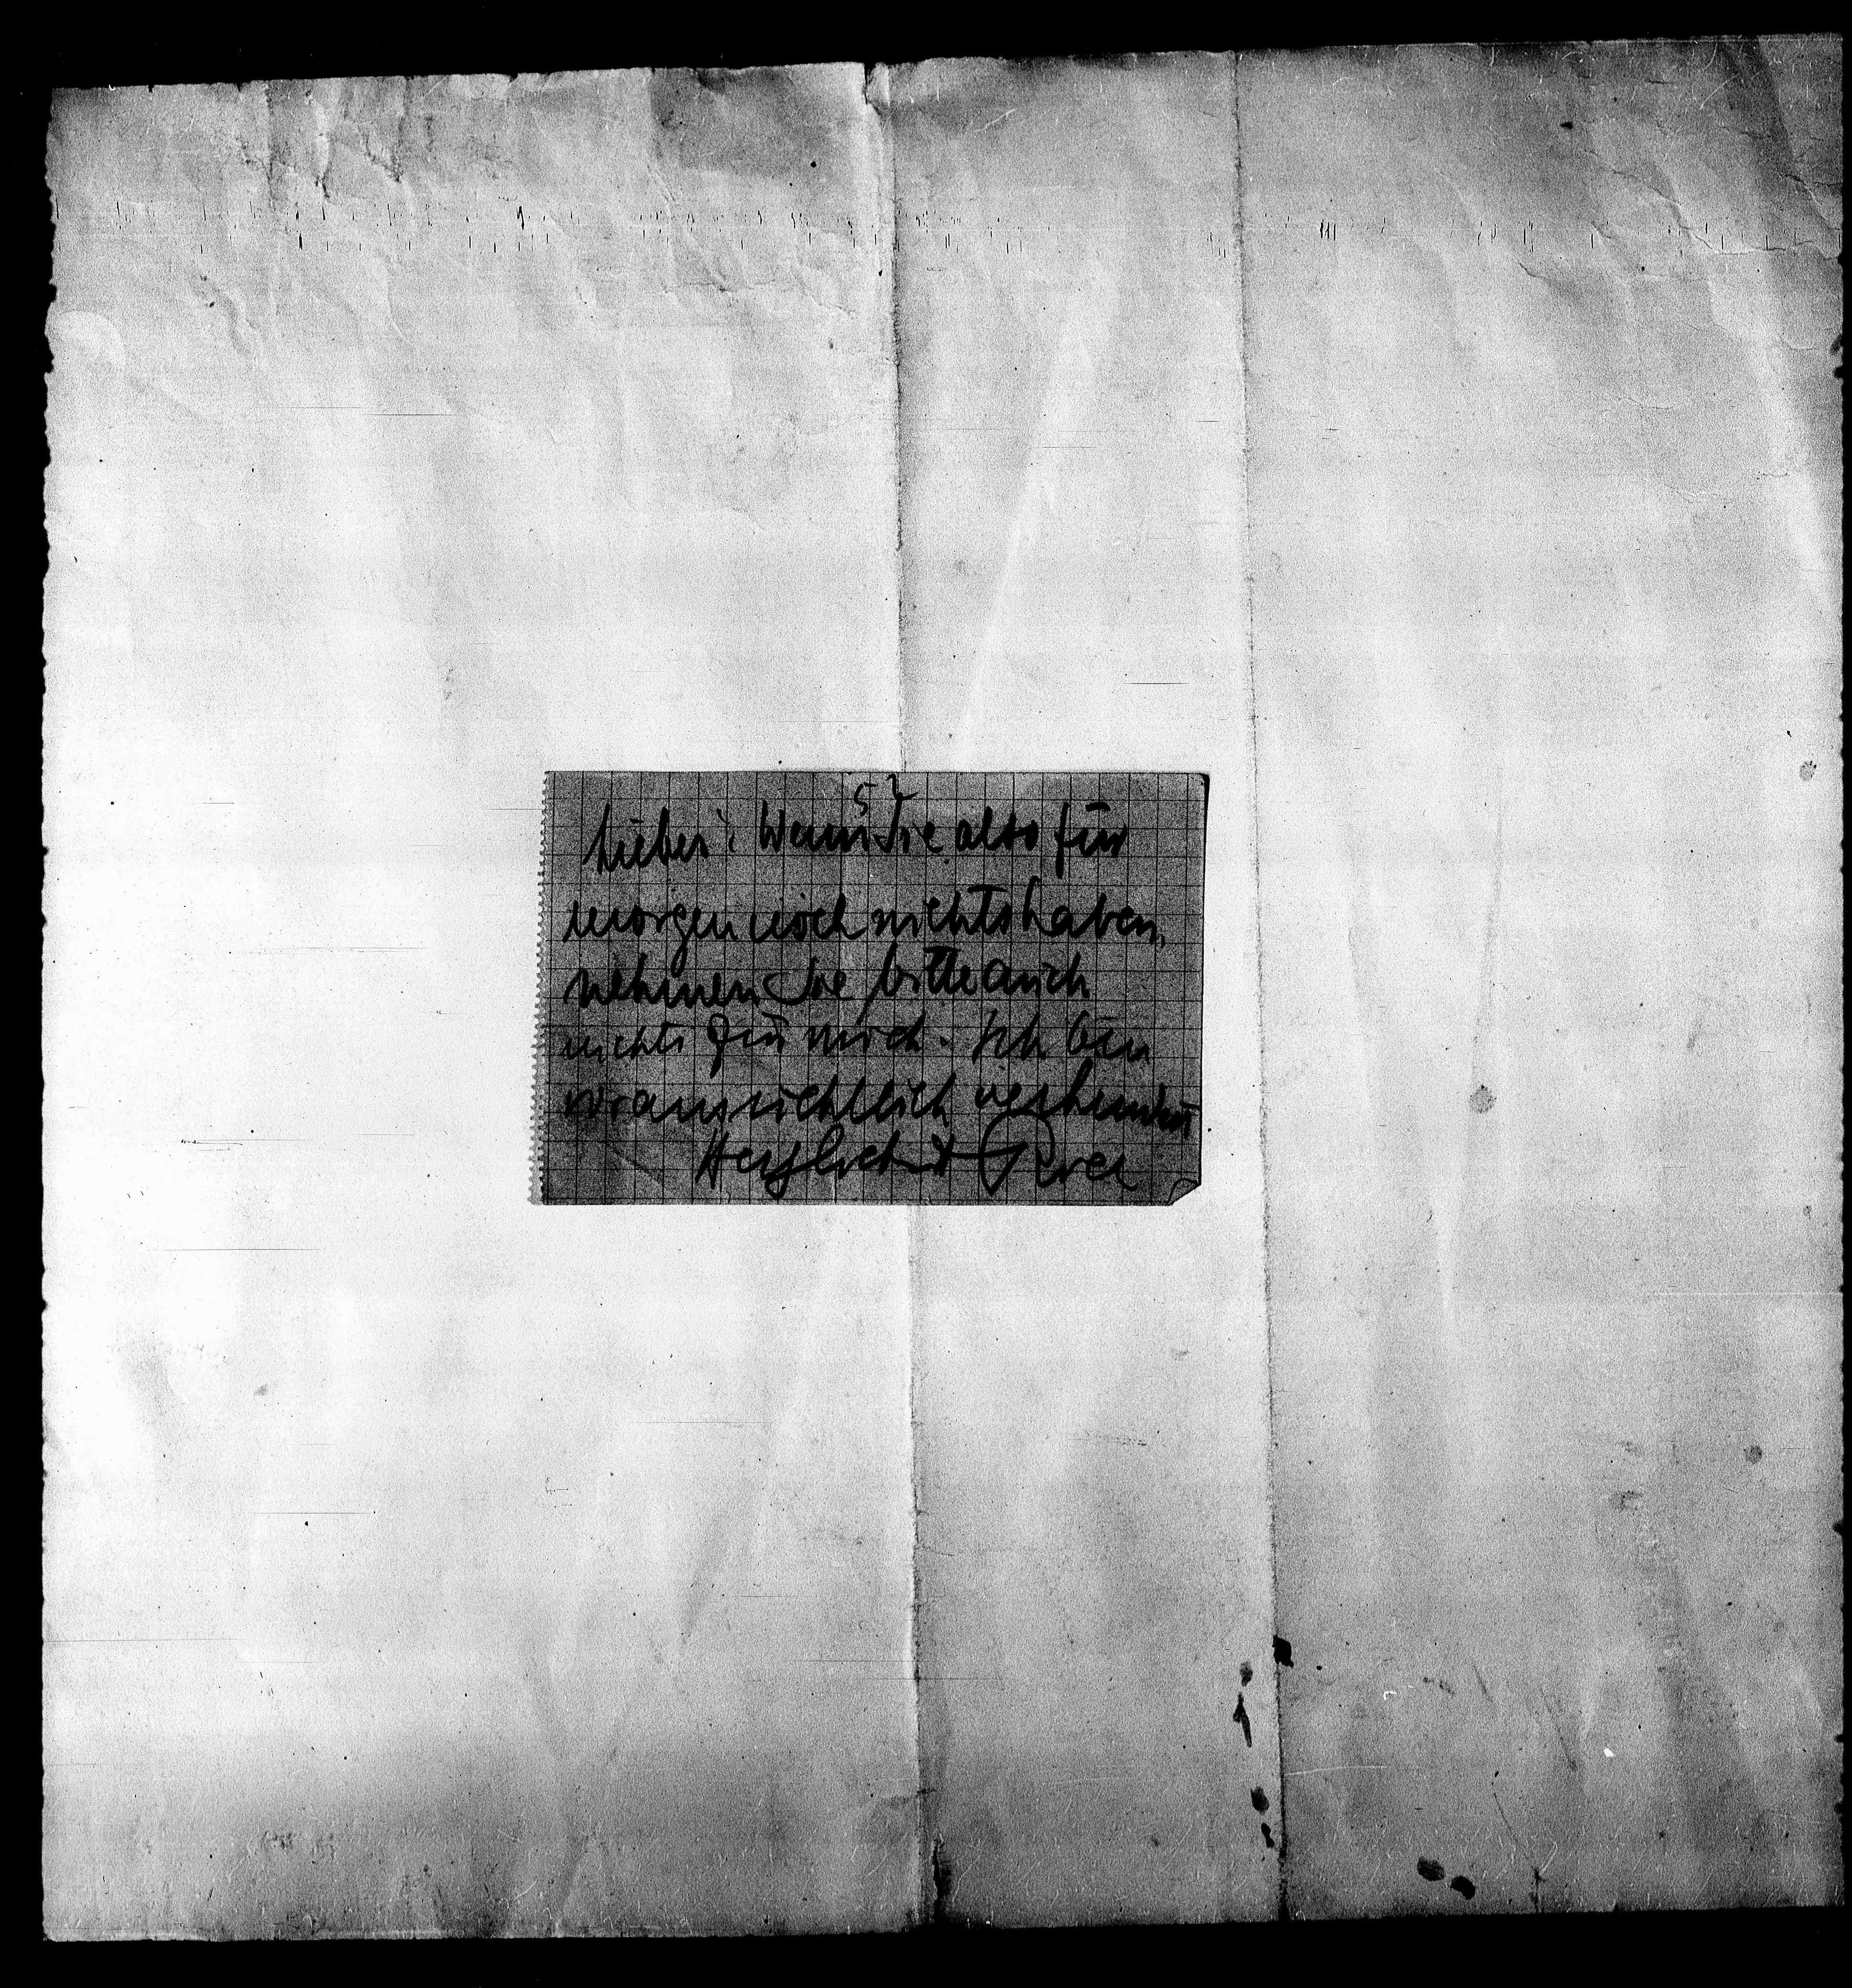 52
Lieber! Wenn Sie also für
morgen noch nichts haben,
nehmen Sie bitte auch
nichts für mich. Ich bin
voraussichtlich verhindert
Herzlichst